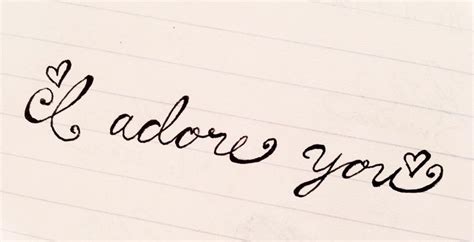 I adore you